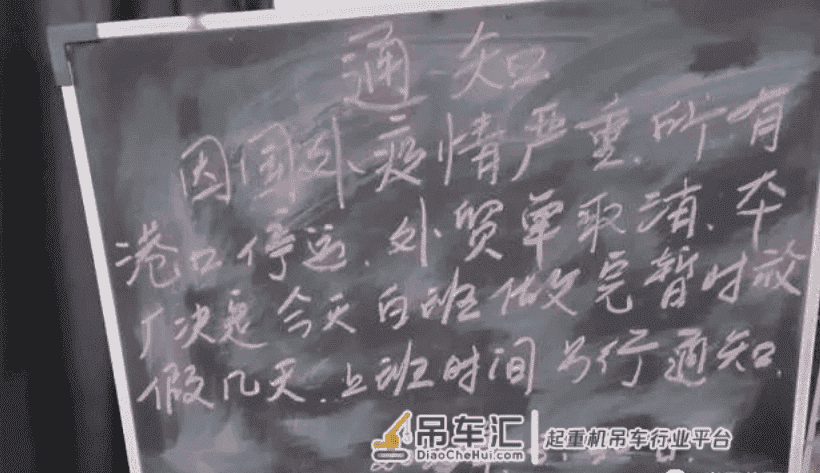 通知
因国外疫情严重.所有
港口停运.外贸单取消.本
厂决定今天白班做完暂时放
假几天.上班时间另行通知.
吊车汇
DiaoCheHui.com
起重机吊车行业平台